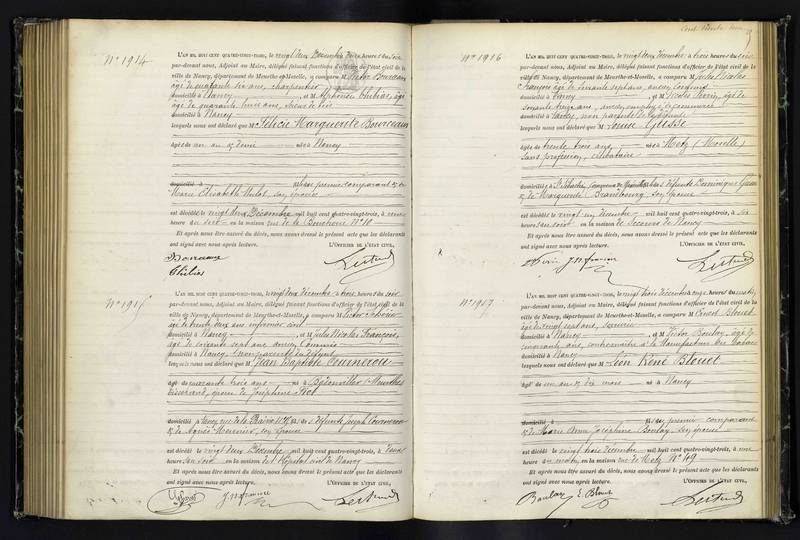 Nº 1914
L'AN MIL HUIT CENT QUATRE-VINGT-TROIS, le vingt deux Décembre à heures du soir
par-devant nous, Adjoint au Maire, délégué faisant fonctions d'officier de l'état civil de la
ville de Nancy, département de Meurthe-et-Moselle, a comparu M
âgé de quarante six ans, charpentier
domicilié à Nancy et M Alphonse Thibias, âgé
de quarante trois ans,
domicilié à Nancy
lesquels nous ont déclaré que M Félicie Marguerite
âgée de un an et demi née à Nancy
domicilié à premier comparant et de
Marie Elisabeth son épouse
est décédée le vingt deux Décembre mil huit cent quatre-vingt-trois, à onze
heures du soir en la maison rue de la Boucherie Nº 10
Et après nous être assuré du décès, nous avons dressé le présent acte que les déclarants
ont signé avec nous après lecture. L'OFFICIER DE L'ÉTAT CIVIL,
Nº 1915
L'AN MIL HUIT CENT QUATRE-VINGT-TROIS, le vingt deux Décembre à trois heures du soir
par-devant nous, Adjoint au Maire, délégué faisant fonctions d'officier de l'état civil de la
ville de Nancy, département de Meurthe-et-Moselle, a comparu M
âgé de trente deux ans infirmier civil
domicilié à Nancy et M Jules Nicolas François,
âgé de soixante sept ans ancien Commis
domicilié à Nancy, non parents du défunt
lesquels nous ont déclaré que M Jean Baptiste Cournerou
âgé de quarante trois ans né à Badonviller (Meurthe)
époux de Joséphine
domicilié à Nancy rue de la fils de défunts Joseph Cournerou
et de Agnès son épouse
est décédé le vingt deux Décembre mil huit cent quatre-vingt-trois, à deux
heures du soir en la maison de l'Hôpital civil de Nancy
Et après nous être assuré du décès, nous avons dressé le présent acte que les déclarants
ont signé avec nous après lecture. L'OFFICIER DE L'ÉTAT CIVIL,
J N françois
Nº 1916
L'AN MIL HUIT CENT QUATRE-VINGT-TROIS, le vingt deux Décembre à trois heures du soir
par-devant nous, Adjoint au Maire, délégué faisant fonctions d'officier de l'état civil de la
ville de Nancy, département de Meurthe-et-Moselle, a comparu M Jules Nicolas
François âgé de soixante sept ans, ancien Commis
domicilié à Nancy et M Nicolas âgé de
soixante
domicilié à Nancy, non parents de la défunte
lesquels nous ont déclaré que M Louise Glisse
âgée de trente trois ans, née à Metz (Moselle)
sans profession, célibataire
domiciliée à fille de défunts Dominique
et de Marguerite Brandbourg, son épouse
est décédée le vingt un décembre mil huit cent quatre-vingt-trois, à six
heures du soir en la maison de Secours de Nancy
Et après nous être assuré du décès, nous avons dressé le présent acte que les déclarants
ont signé avec nous après lecture. L'OFFICIER DE L'ÉTAT CIVIL,
J N françois
Nº 1917
L'AN MIL HUIT CENT QUATRE-VINGT-TROIS, le vingt trois Décembre à onze heures du matin,
par-devant nous, Adjoint au Maire, délégué faisant fonctions d'officier de l'état civil de la
ville de Nancy, département de Meurthe-et-Moselle, a comparu M Ernest Blouet
âgé de vingt sept ans,
domicilié à Nancy et M Victor Boulay, âgé de
cinquante ans, contremaître à la Manufacture des tabacs
domicilié à Nancy
lesquels nous ont déclaré que M Léon René Blouet
âgé de un an et dix mois né à Nancy
domicilié à fils du premier comparant
et de Marie Anne Joséphine Boulay, son épouse
est décédé le vingt trois Décembre mil huit cent quatre-vingt-trois, à une
heure du matin en la maison rue de Metz Nº 49
Et après nous être assuré du décès, nous avons dressé le présent acte que les déclarants
ont signé avec nous après lecture. L'OFFICIER DE L'ÉTAT CIVIL,
Boulay E. Blouet